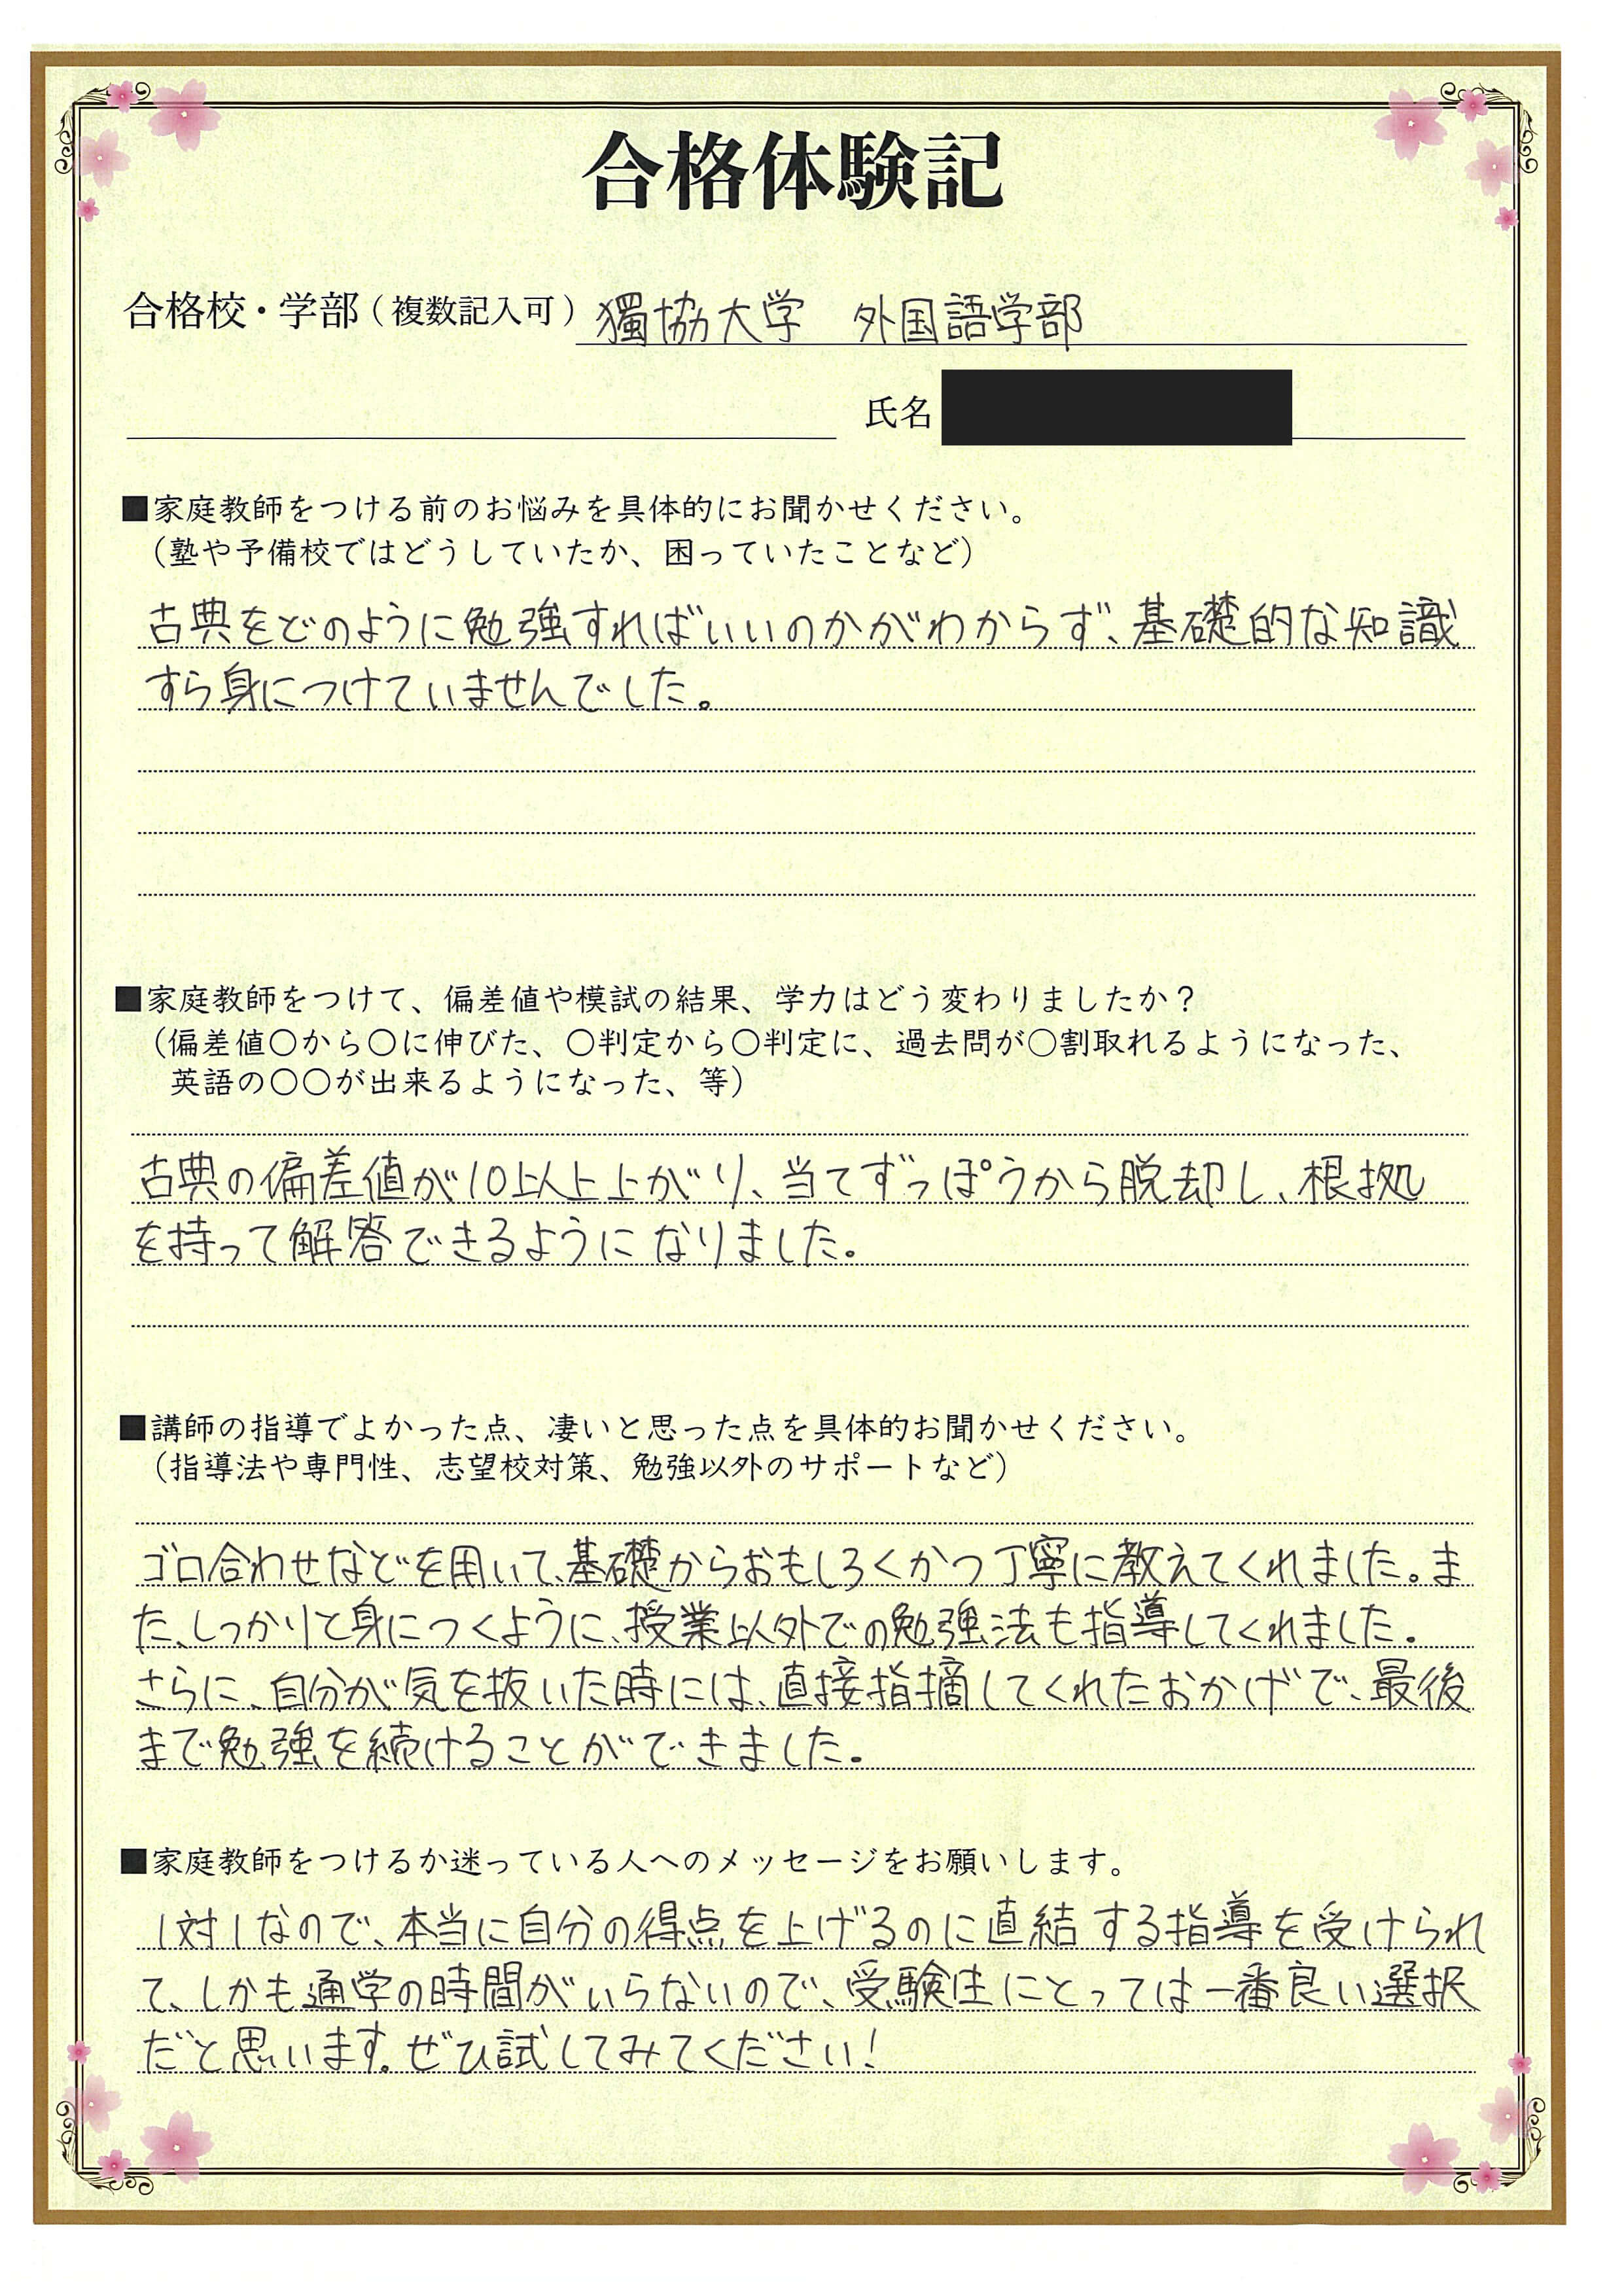 合格体験記
合格校・学部（複数記入可）獨協大学 外国語学部
氏名
■家庭教師をつける前のお悩みを具体的にお聞かせください。
（塾や予備校ではどうしていたか、困っていたことなど）
古典をどのように勉強すればいいのかがわからず、基礎的な知識
すら身につけていませんでした。
■家庭教師をつけて、偏差値や模試の結果、学力はどう変わりましたか？
（偏差値〇から〇に伸びた、〇判定から〇判定に、過去問が〇割取れるようになった、
英語の〇〇が出来るようになった、等）
古典の偏差値が10以上上がり、当てずっぽうから脱却し、根拠
を持って解答できるようになりました。
■講師の指導でよかった点、凄いと思った点を具体的お聞かせください。
（指導法や専門性、志望校対策、勉強以外のサポートなど）
ゴロ合わせなどを用いて、基礎からおもしろくかつ丁寧に教えてくれました。ま
た、しっかりと身につくように、授業以外での勉強法も指導してくれました。
さらに、自分が気を抜いた時には、直接指摘してくれたおかげで、最後
まで勉強を続けることができました。
■家庭教師をつけるか迷っている人へのメッセージをお願いします。
1対1なので、本当に自分の得点を上げるのに直結する指導を受けられ
て、しかも通学の時間がいらないので、受験生にとっては一番良い選択
だと思います。ぜひ試してみてください！